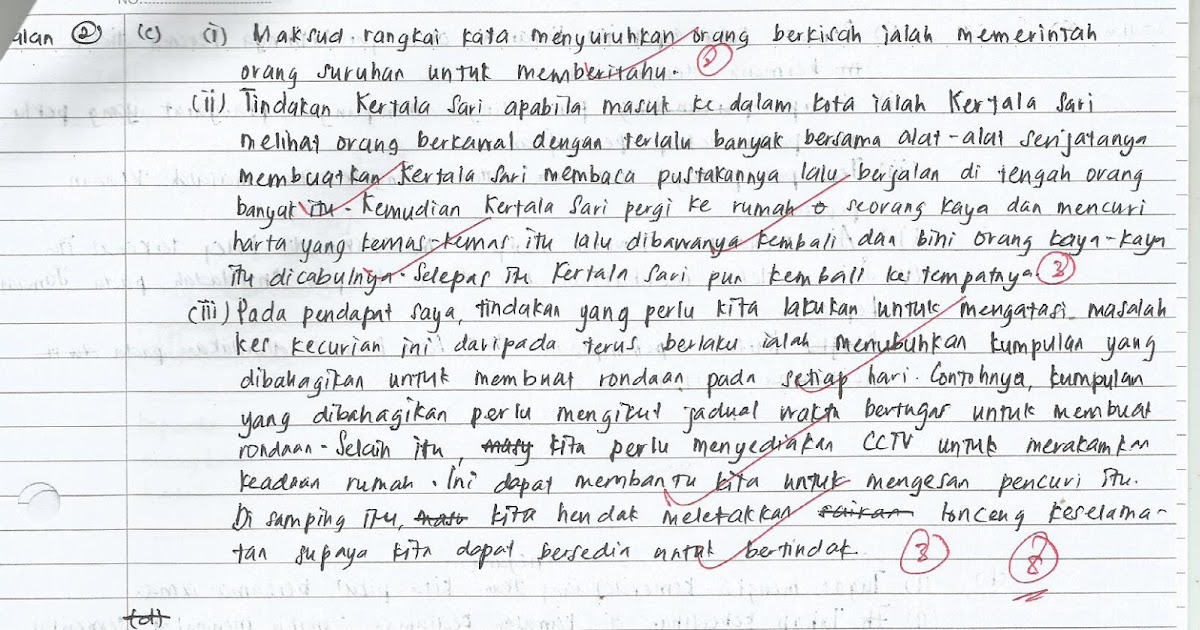 NO.
alan ② (c) (i) Maksud rangkai kata menyuruhkan orang berkisah ialah memerintah
orang suruhan untuk memberitahu. 2
(ii) Tindakan Kertala Sari apabila masuk ke dalam kota ialah Kertala Sari
melihat orang berkawal dengan terlalu banyak bersama alat-alat senjatanya
membuatkan Kertala Sari membaca pustakannya lalu berjalan di tengah orang
banyak itu. Kemudian Kertala Sari pergi ke rumah seorang kaya dan mencuri
harta yang kemas-kemas itu lalu dibawanya kembali dan bini orang kaya-kaya
itu dicabulnya. Selepas itu Kertala Sari pun kembali ke tempatnya. 3
(iii) Pada pendapat saya, tindakan yang perlu kita lakukan untuk mengatasi masalah
kes kecurian ini daripada terus berlaku ialah menubuhkan kumpulan yang
dibahagikan untuk membuat rondaan pada setiap hari. Contohnya, kumpulan
yang dibahagikan perlu mengikut jadual waktu bertugas untuk membuat
rondaan. Selain itu, kita perlu menyediakan CCTV untuk merakamkan
keadaan rumah. Ini dapat membantu kita untuk mengesan pencuri itu.
Di samping itu, kita hendak meletakkan lonceng keselama-
tan supaya kita dapat bersedia untuk bertindak. 3 8
(d)